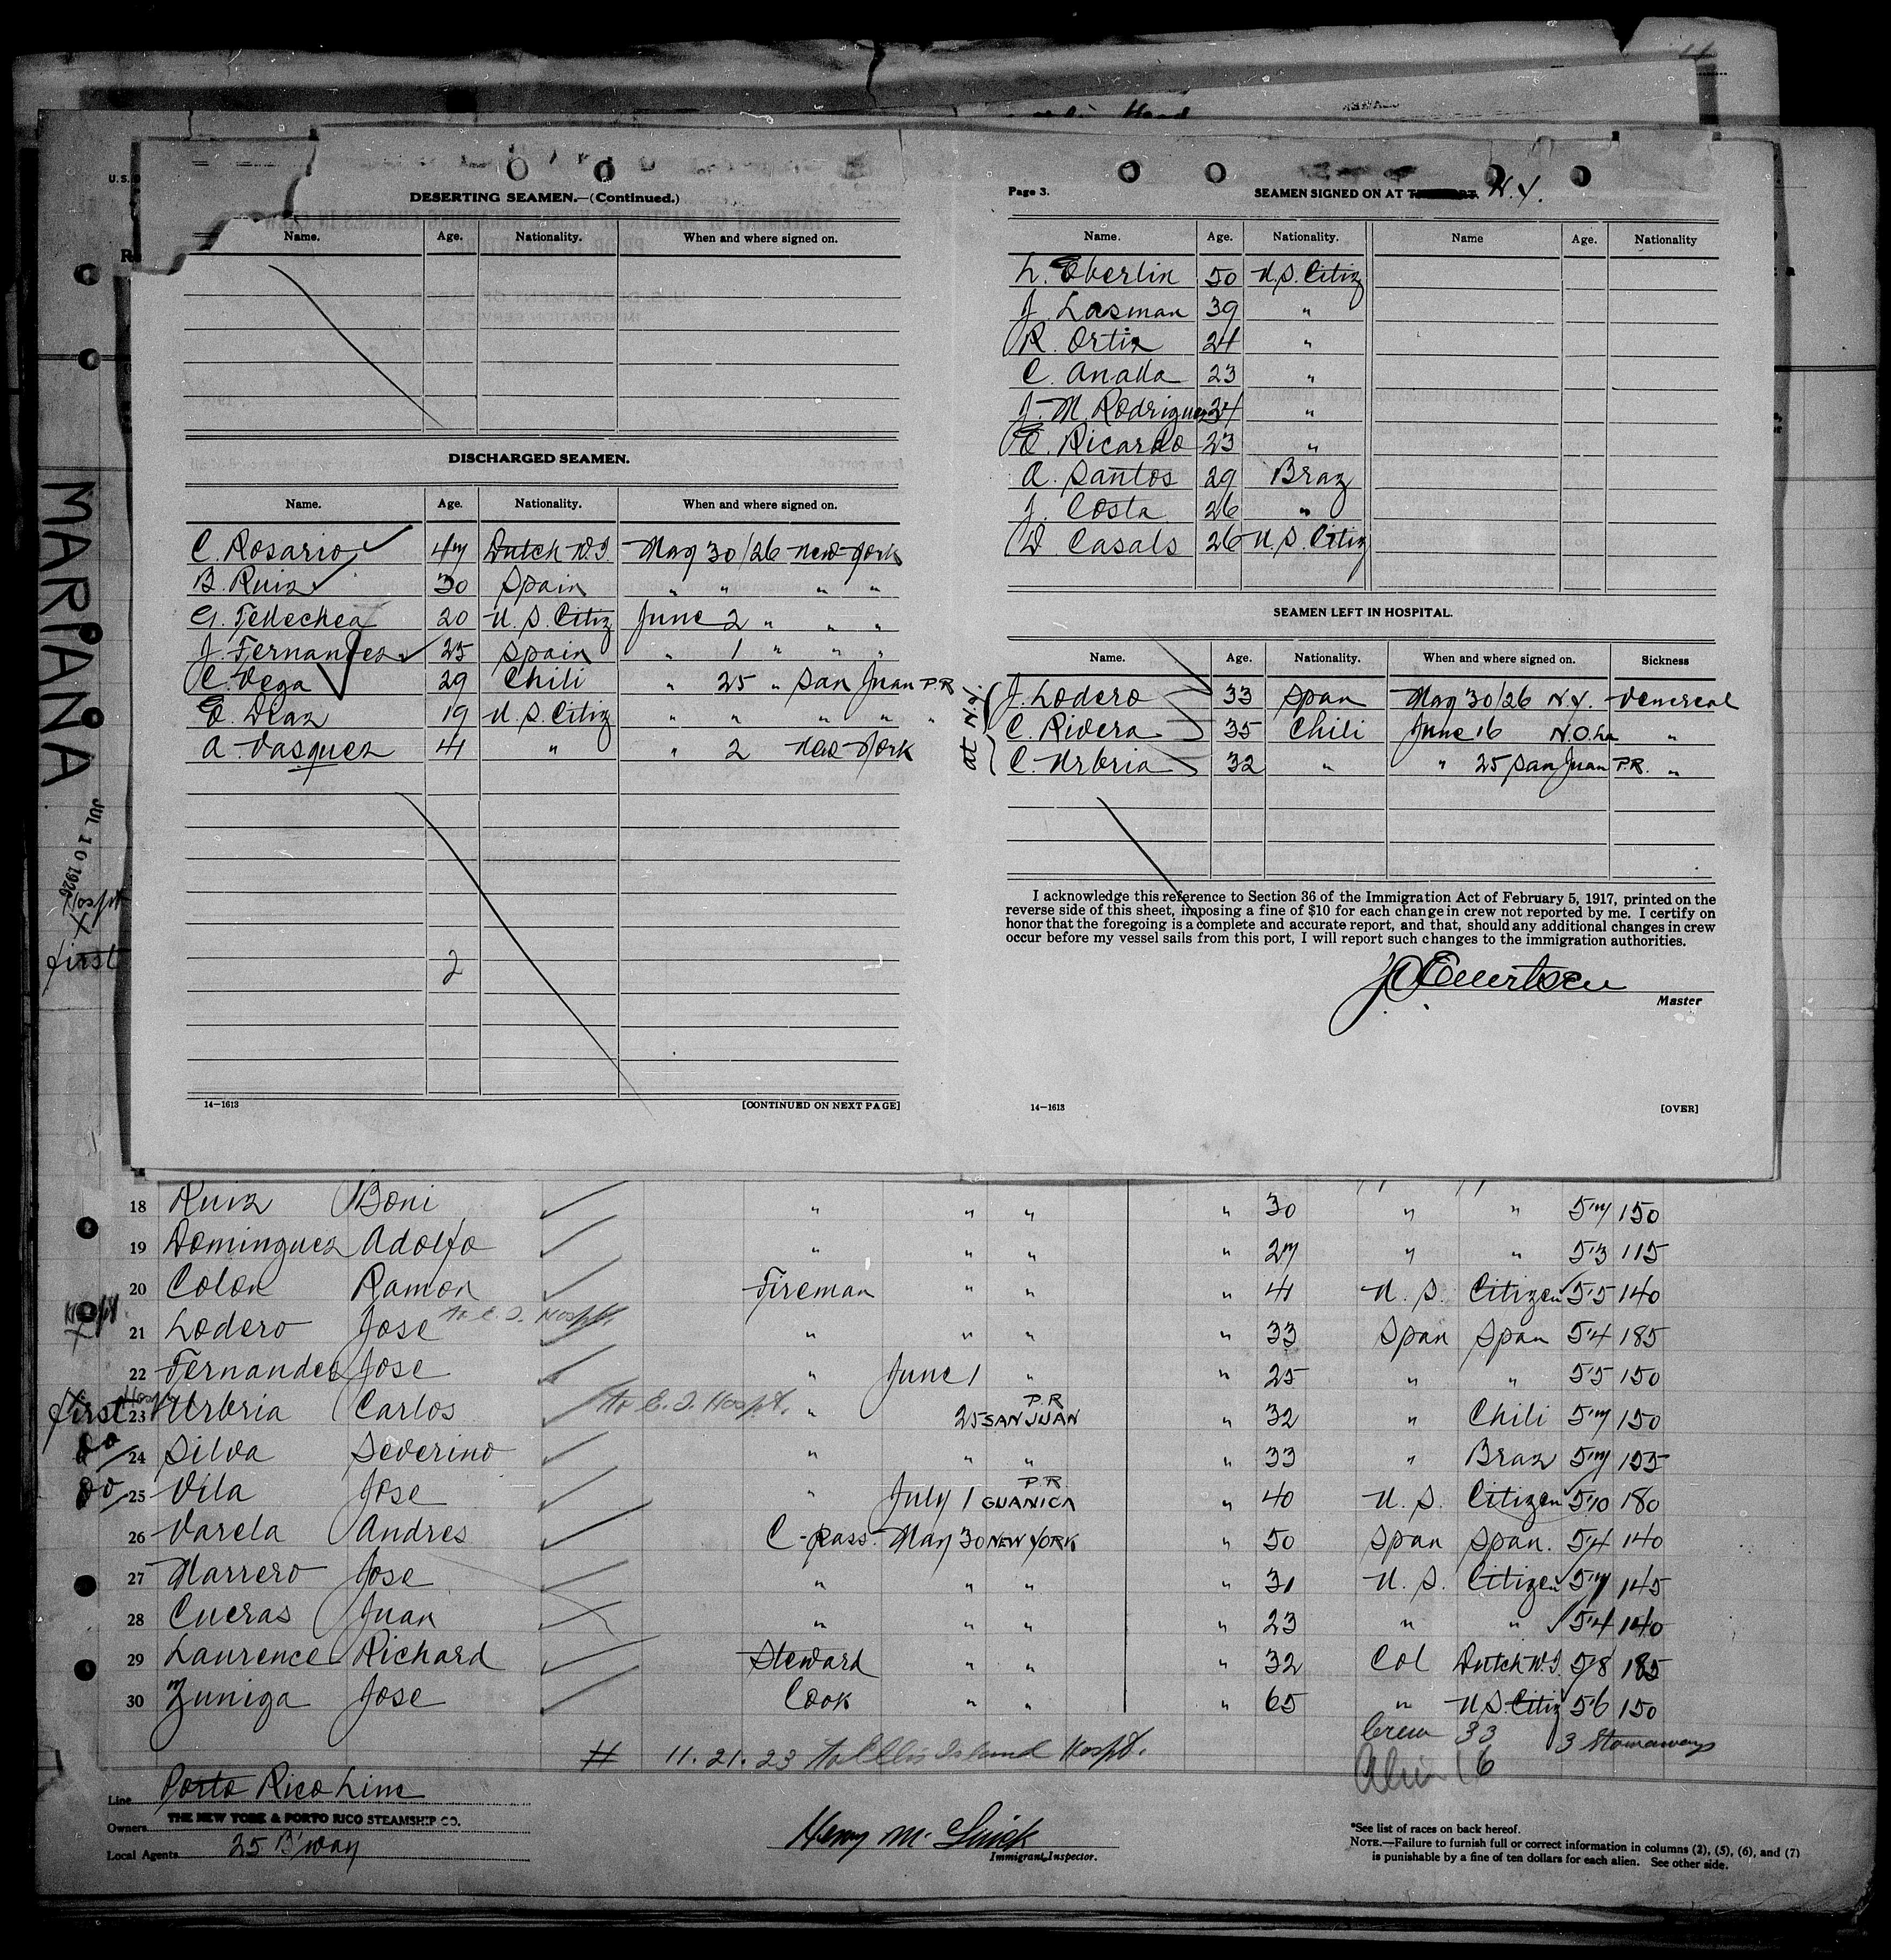 U.S.
DESERTING SEAMEN.—(Continued.)
Name. Age. Nationality. When and where signed on.
DISCHARGED SEAMEN.
Name. Age. Nationality. When and where signed on.
C. Rosario 47 Dutch W.I. May 30/26 New York
B. Ruiz 30 Spain " " " "
G. Tellechea 20 U.S. Citiz June 2 " " "
J. Fernandez 25 Spain " 1 " " "
C. Vega 29 Chili " 25 " San Juan P.R.
E. Diaz 19 U.S. Citiz " " " " "
A. Vasquez 41 " " 2 New York
2
14—1613 [CONTINUED ON NEXT PAGE]
Page 3. SEAMEN SIGNED ON AT N.Y.
Name. Age. Nationality. Name Age. Nationality
L. Eberlin 50 U.S. Citiz
J. Lasman 39 "
R. Ortiz 24 "
C. Anada 23 "
J. M. Rodriguez 24 "
E. Ricardo 23 "
A. Santos 29 Braz
J. Costa 26 "
D. Casals 26 U.S. Citiz
SEAMEN LEFT IN HOSPITAL.
Name. Age. Nationality. When and where signed on. Sickness
at N.Y.
J. Lodero 33 Span May 30/26 N.Y. Venereal
C. Rivera 35 Chili June 16 N.O. La "
C. Urbria 32 " " 25 San Juan P.R. "
I acknowledge this reference to Section 36 of the Immigration Act of February 5, 1917, printed on the
reverse side of this sheet, imposing a fine of $10 for each change in crew not reported by me. I certify on
honor that the foregoing is a complete and accurate report, and that, should any additional changes in crew
occur before my vessel sails from this port, I will report such changes to the immigration authorities.
Master
14—1613 [OVER]
MARIANA
JUL 10 1926
Hospt
X
first
18 Ruiz Boni " " " " 30 " " 5'7 150
19 Dominguez Adolfo " " " " 27 " " 5'3 115
20 Colon Ramon Fireman " " " 41 U.S. Citizen 5'5 140
Hospt X 21 Lodero Jose To E.I. Hospt. " " " " 33 Span Span 5'4 185
22 Fernandez Jose " June 1 " " 25 " " 5'5 150
first Hospt 23 Urbria Carlos To E.I. Hospt. " 25 SAN JUAN P.R " 32 " Chili 5'7 150
do 24 Silva Severino " " " " 33 " Braz 5'7 155
do 25 Vila Jose " July 1 GUANICA P.R. " 40 U.S. Citizen 5'10 180
26 Varela Andres C-pass. May 30 NEW YORK " 50 Span Span. 5'4 140
27 Marrero Jose " " " " 31 U.S. Citizen 5'7 145
28 Cueras Juan " " " " 23 " " 5'4 140
29 Laurence Richard Steward " " " 32 Col Dutch W.I. 5'8 185
30 Zuniga Jose Cook " " " 65 " U.S. Citiz 5'6 150
# 11. 21. 23 To Ellis Island Hospt.
Crew 33 3 Stowaways
Alien 16
Line Porto Rico Line
Owners THE NEW YORK & PORTO RICO STEAMSHIP CO.
Local Agents 25 B'way
Henry M.
Immigrant Inspector.
*See list of races on back hereof.
NOTE.—Failure to furnish full or correct information in columns (2), (5), (6), and (7)
is punishable by a fine of ten dollars for each alien. See other side.